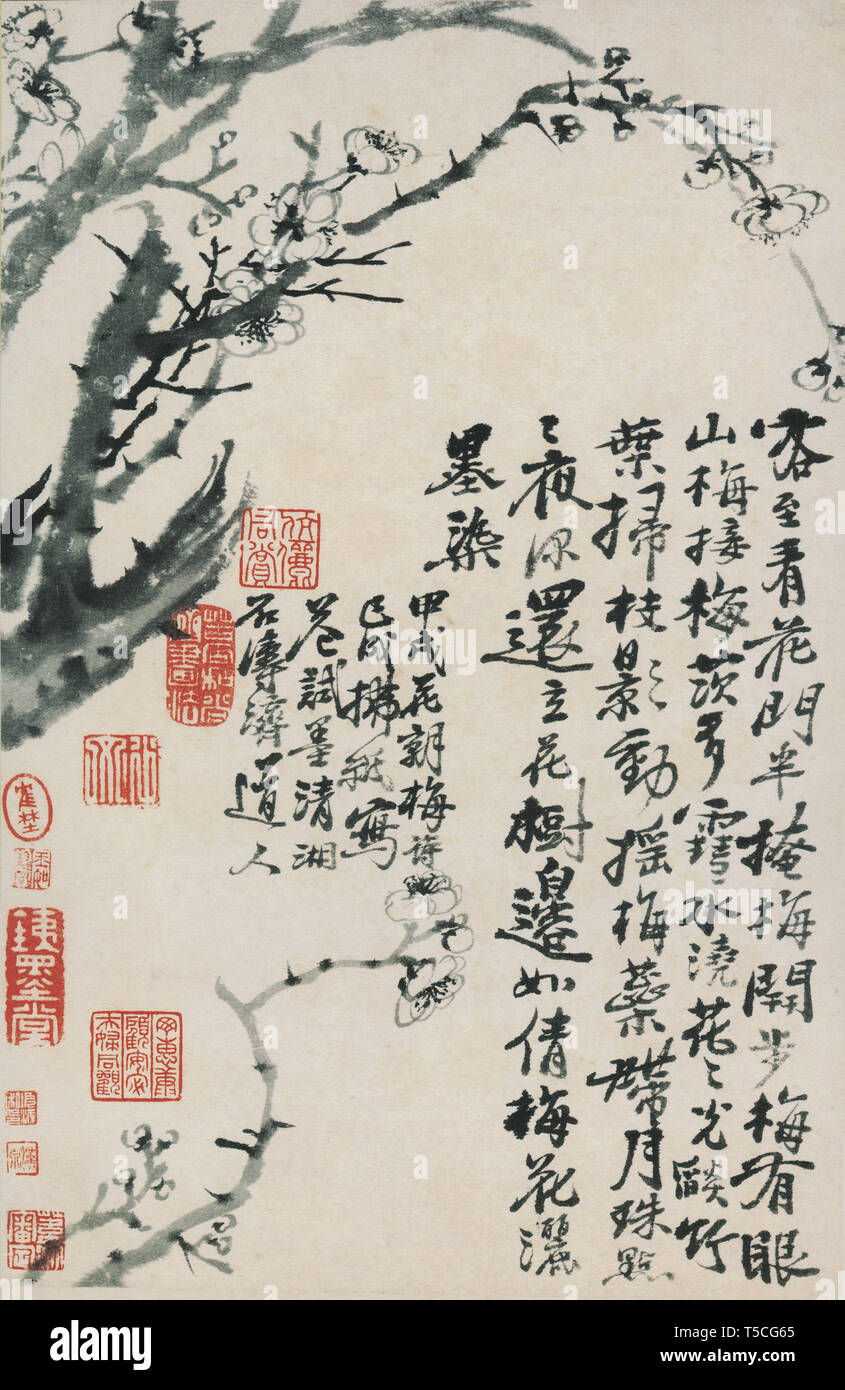 客至看花門半掩梅開步梅有眼
山梅接梅茨多雪水澆花〻光豔竹
葉掃枝影動搖梅蕊帶月珠點
〻夜深還立花樹邊如倩梅花灑
墨染
甲戌花朝梅詩
已成拂紙寫
卷試墨清湘
石濤濟道人
alamy
Image ID: T5CG65
www.alamy.com